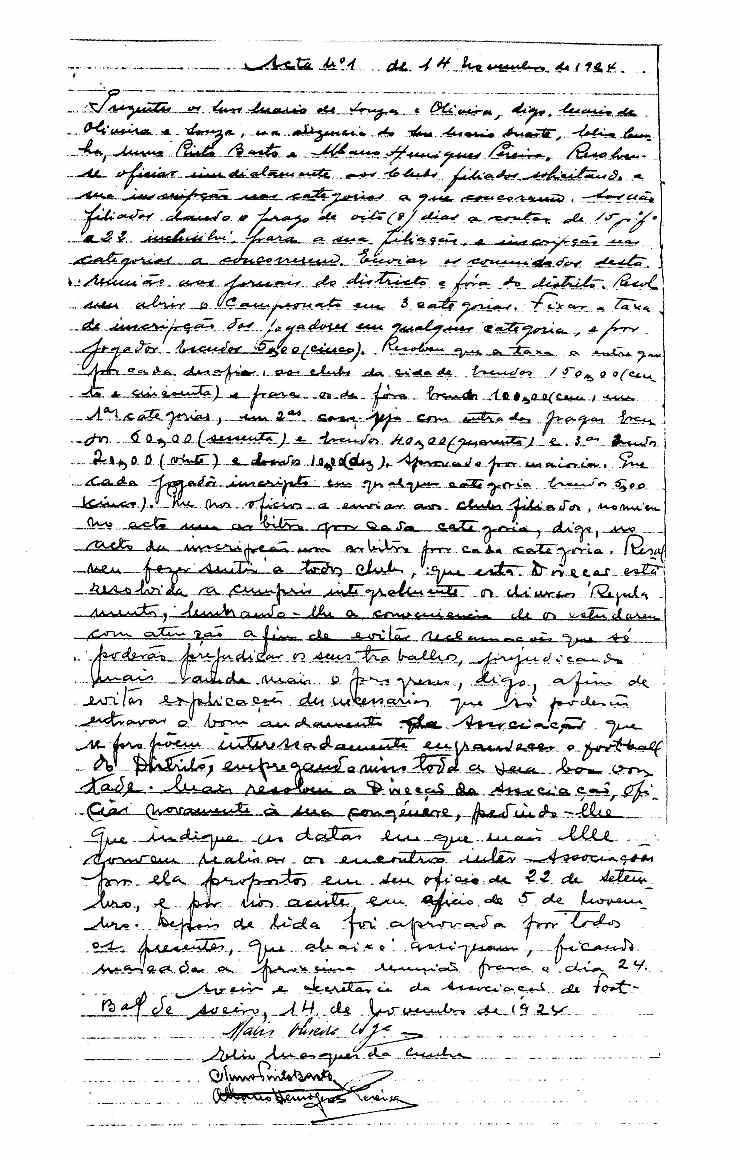 Acta Nº1 de 14 Novembro de 1924.
Prezentes os Snrs Mario de Souza e Oliveira, digo, Mario de
Oliveira e Souza, na auzencia do Snr Mario Duarte, Celio Cun-
ha, Nuno Pinto Basto e Albano Henriques Pereira. Resolveu-
se oficiar imediatamente aos Clubs filiados solicitando a
sua inscripção nas categorias a que concorrem. Aos não
filiados dando o prazo de oito (8) dias a contar de 15
a 22 inclusivé para a sua filiação, e inscripção nas
categorias a concorrerem. Enviar os comunicados desta
reunião aos jornais do districto e fóra do districto. Resol-
veu abrir o Campeonato em 3 categorias. Fixar a taxa
de inscripção dos jogadores em qualquer categoria, e por
jogador Escudos 5,00 (cinco). Resolveu que a taxa a entregar
por cada desafio, aos clubs da cidade Escudos 150,00 (cen-
to e cincoenta) e para os de fóra Escudos 100,00 (cem), em
1as categorias, em 2as com entradas pagas Escu-
dos 60,00 (sessenta) e Escudos 40,00 (quarenta) e 3as Escudos
20,00 (vinte) e Escudos 10,00 (dez). Aprovado por maioria. Que
cada jogador inscripto em qualquer categoria Escudos 5,00
(cinco). Que nos oficios a enviar aos clubs filiados, nomiem
no acto um arbitro por cada categoria, digo, no
acto da inscripção um arbitro por cada categoria. Resol-
veu fazer sentir a todos clubs, que esta Direcção está
resolvida a cumprir integralmente os diversos Regula-
mentos, lembrando-lhe a conveniencia de os estudarem
com atenção afim de evitar reclamações que só
poderão prejudicar os seus trabalhos, prejudicando
mais ainda mais o progresso, digo, afim de
evitar explicações desnecessarias que só poderão
entravar o bom andamento da Associação que
se propõem interessadamente engrandecer o football
do Distrito, empregando nisso toda a sua boa von-
tade. Mais resolveu a Direcção da Associação, ofi-
ciar novamente à sua congénere, pedindo-lhe
que indique as datas em que mais lhe
convem realisar os encontros inter-Associações
por ela propostos em seu oficio de 22 de Setem-
bro, e por nós aceite, em oficio de 5 de Novem-
bro. Depois de lida foi aprovada por todos
os presentes, que abaixo assignam, ficando
marcada a proxima reunião para o dia 24.
Aveiro e Secretaria da Associação de Foot-
Ball de Aveiro, 14 de Novembro de 1924
Celio Marques da Cunha
Nuno Pinto Basto
Albano Henriques Pereira